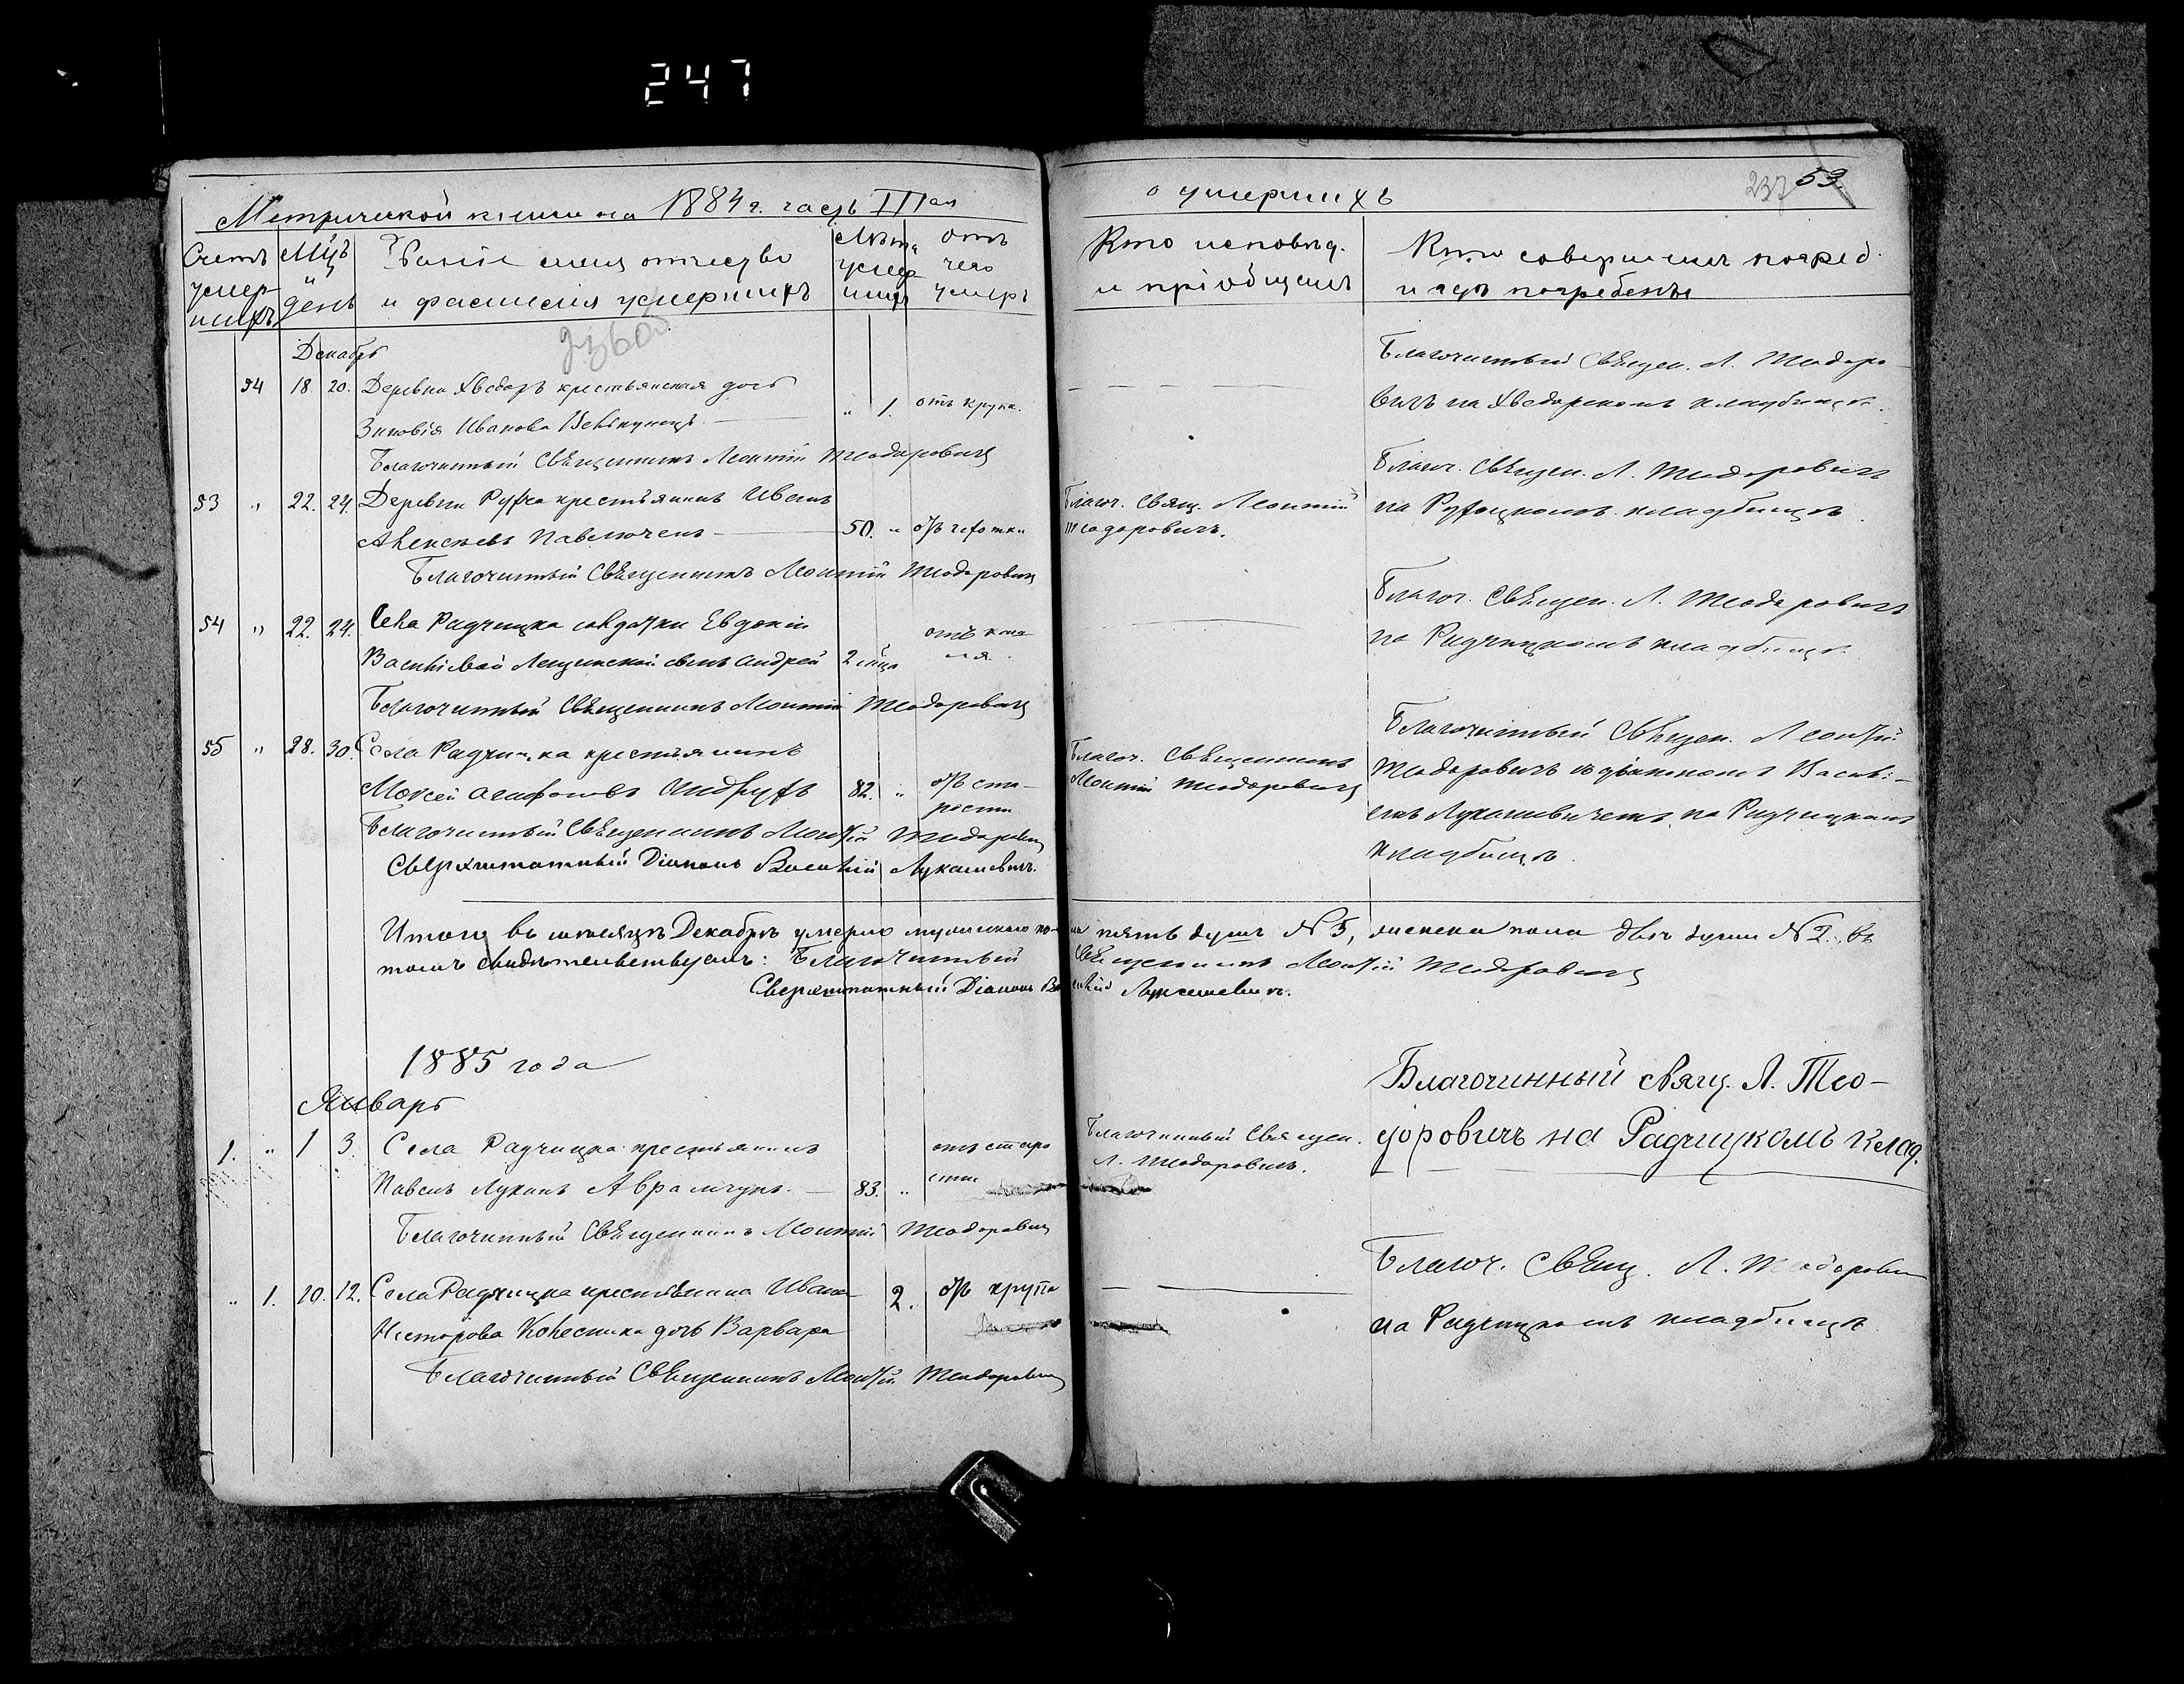 247
Метрической книги на 1884 г. часть III ая
Счетъ умер-шихъ
Мцъ и день
Званіе имя отчество и фамилія умершихъ
Лѣта умер шихъ
отъ чего умеръ
Декабрь
54 18. 20. Деревни Хведоръ крестьянская дочь
Зиновія Иванова
" 1. отъ крупа.
Благочинный Священникъ Леонтій Теодоровичъ
53 " 22. 24. Деревни Рубча крестьянинъ Иванъ
Алексѣевъ Павлючекъ 50. " отъ чахотки
Благочинный Священникъ Леонтій Теодоровичъ
54 " 22. 24. Села Радчицка солдатки Евдокіи
Васильевой Лещинской сынъ Андрей 2 мца отъ каш ля
Благочинный Священникъ Леонтій Теодоровичъ
55 " 28. 30. Села Радчицка крестьянинъ
Мойсей Агафоновъ 82. " отъ ста-рости
Благочинный Священникъ Леонтій Теодоровичъ
Сверхштатный Діаконъ Василій Лукашевичъ.
Итого въ мѣсяцѣ Декабрѣ умерло мужескаго по-
томъ свидѣтельствуемъ: Благочинный
Сверхштатный Діаконъ Ва
1885 года
Январь
1. " 1 3. Села Радчицка крестьянинъ
Павелъ Лукинъ Аврамчукъ. 83. " отъ старо сти
Благочинный Священникъ Леонтій Теодоровичъ
" 1. 10. 12. Села Радчицка крестьянина Ивана
Несторова Колесника дочь Варвара 2. отъ крупа
Благочинный Священникъ Леонтій Теодоровичъ
о умершихъ
237 53
Кто исповѣд. и пріобщилъ
Кто совершилъ погреб. и гдѣ погребены
Благочинный Священ. Л. Теодоро
вичъ на Хведорскомъ кладбищѣ.
Благоч. Священ. Л. Теодоровичъ
Благоч. Свящ. Леонтій
Теодоровичъ.
на кладбищѣ.
Благоч. Священ. Л. Теодоровичъ
на Радчицкомъ кладбищѣ.
Благоч. Священникъ
Леонтій Теодоровичъ
Благочинный Священ. Леонтій
Теодоровичъ съ діакономъ Васильемъ
Лукашевичемъ на Радчицкомъ
кладбищѣ.
ла пять душъ № 5, женска пола двѣ души № 2., въ
Священникъ Леонтій Теодоровичъ
силій Лукашевичъ.
Благочинный Священ.
Л. Теодоровичъ.
Благочинный свящ. Л. Тео-
доровичъ на Радчицкомъ клад.
Благоч. Свящ. Л. Теодорович
на Радчицкомъ кладбищѣ